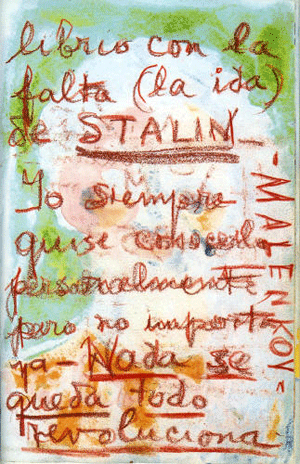 librio con la
falta (la ida)
de STALIN_
Yo siempre
quise conocerlo
personalmente
pero no importa
ya - Nada se
queda todo
revoluciona -
- MALENKOV -